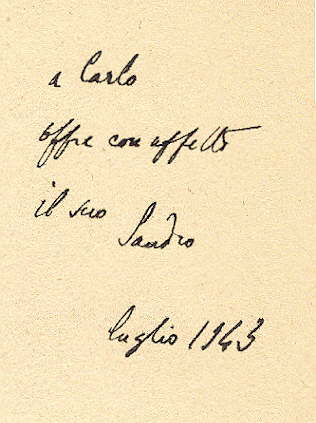 a Carlo
offre con affetto
il suo
Sandro
luglio 1943